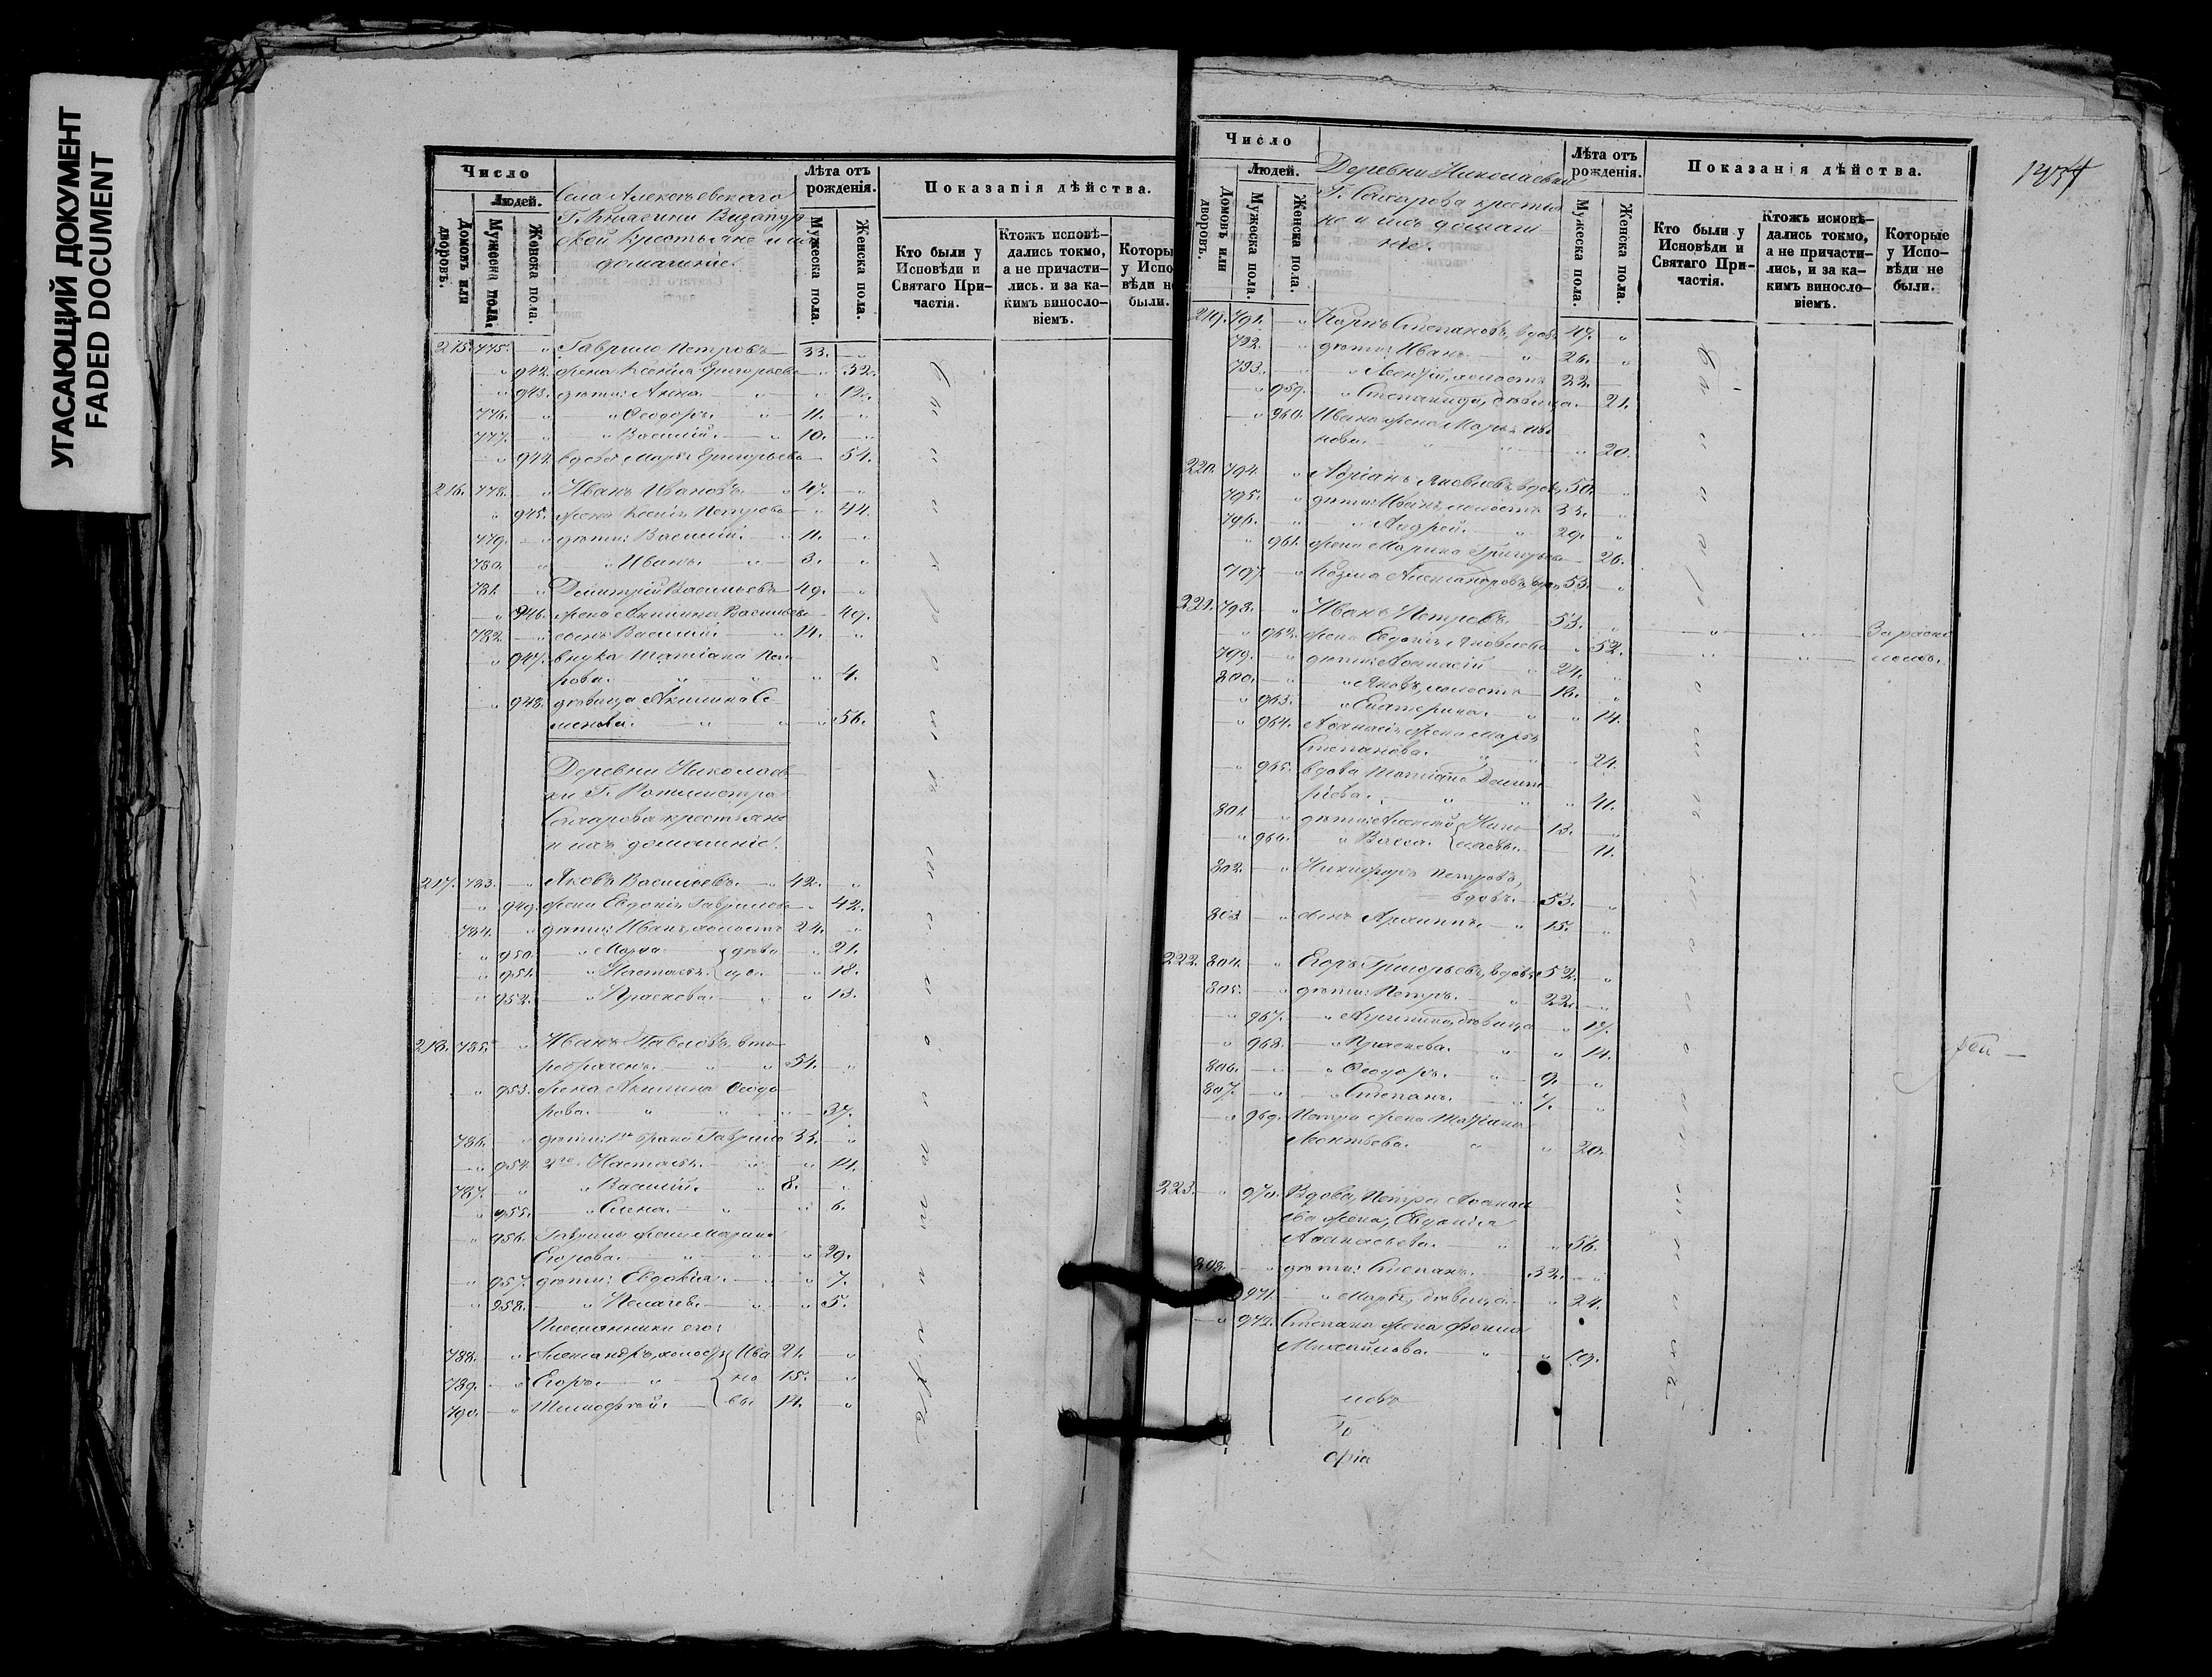 УГАСАЮЩИЙ ДОКУМЕНТ
FADED DOCUMENT
Число
Людей.
Домовъ или дворовъ.
Мужеска пола.
Женска пола.
Села Алексѣевскаго
Г. Княгини Визапур
ской крестьяне и ихъ
домашніе.
Лѣта отъ рожденія.
Мужеска пола.
Женска пола.
Показанія дѣйства.
Кто были у Исповѣди и Святаго Причастія.
Ктожъ исповѣдались токмо, а не причастились. и за какимъ винословіемъ.
Которы у Испо вѣди н были.
215. 775. " Гаврило Петровъ 33. "
" 942. жена Ксенія Григорьева " 32.
" 943. дѣти: Анна " 12.
776. " " Ѳеодоръ " 11. "
777. " " Василій. " 10. "
" 944. вдова Марья Григорьева 54.
216. 778. " Иванъ Ивановъ " 47. "
" 945. жена Ксенія Петрова " 44.
779. " дѣти: Василій. " 11. "
780. " " Иванъ. " 3. "
781. " Дмитрій Васильевъ 49. "
" 946. жена Акилина Васильева 49.
782. " сынъ Василій. " 14. "
" 947. внука Татіана Пет
рова. " " " 4.
" 948. дѣвица Акилина Се
менова. " " " 56.
Деревни Николаев
ки Г. Ротмистра
Сахарова крестьяне
и ихъ домашніе.
217. 783. " Яковъ Васильевъ. " 42. "
" 949. жена Евдокія Гаврилова " 42.
784. " дѣти: Иванъ, холостъ 24. "
" 950. " Марѳа { дѣви " 21.
" 951. " Настасья { цы. " 18.
" 952. " Прасковья. " " 13.
218. 785. " Иванъ Павловъ, вто
робраченъ. " " 54. "
" 953. жена Акилина Ѳеодо
рова. " " " 37.
786. " дѣти: 1го брака Гаврило 33. "
" 954. 2го Настасья. " " 11.
787. " " Василій. " 8. "
" 955. " Елена. " " 6.
" 956. Гаврилы жена Марина
Егорова. " " " 29.
" 957. дѣти: Евдокія. " " 7.
" 958. " Пелагея. " " 5.
Племянники его:
788. " Александръ, холостъ { Ива 21. "
789. " Егоръ. " { но 15. "
790. " Тимофей. { вы 14. "
Число
Людей.
Домовъ или дворовъ.
Мужеска пола.
Женска пола.
Деревни Николаевки
Г. Сахарова крестья
не и ихъ домаш
ніе.
Лѣта отъ рожденія.
Мужеска пола.
Женска пола.
Показанія дѣйства.
Кто были у Исповѣди и Святаго Причастія.
Ктожъ исповѣдались токмо, а не причастились, и за какимъ винословіемъ.
Которые у Исповѣди не были.
219. 791. " Карпъ Степановъ, вдов. 47. "
792. " дѣти: Иванъ. " 26. "
793. " " холостъ 22.
" 959. " Степанида, дѣвица. 21.
" 960. Ивана жена Марья Ива
нова. " " " 20.
220. 794. " Адріанъ Яковлевъ, вдовъ 50. "
795. " дѣти: Иванъ, холостъ "
796. " " Андрей. " 29. "
" 961. жена Марина Григорьева 26.
797. " Козма Александровъ, вдов. 53. "
221. 798. " Иванъ Петровъ. 53. " " " За раско
" 962. жена Евдокія Яковлева " 52. " " ломъ.
799. " дѣти: Аѳанасій " 24. "
800. " " Яковъ, холостъ 18. "
" 963. " Екатерина. " " 14.
" 964. Аѳанасія жена Марья
Степанова. " " 24.
" 965. вдова Татіана Дмит
ріева. " " " 41.
801. " дѣти: Алексѣй { Нико 13. "
" 966. " Васса. { лаевы. 11.
802. " Никифоръ Петровъ,
вдовъ. 53. "
803 " сынъ Архиппъ. " 15. "
222. 804. " Егоръ Григорьевъ, вдовъ 52. "
805. " дѣти: Петръ. " 22. "
" 967. " дѣвица " 17.
" 968. " Прасковья. " " 14.
806. " " Ѳеодоръ. " 9. "
807. " " Степанъ. " 7. "
" 969. Петра жена Татіана
Леонтьева. " " 20.
223. " 970. Вдова, Петра Аѳанась
ева жена, Евдокія
Аѳанасьева. " " 56.
808. " дѣти: Степанъ. 32. "
971. " Марья, дѣвица. " 24.
" 972. Степана жена Ѳекла
Михайлова. " " 19.